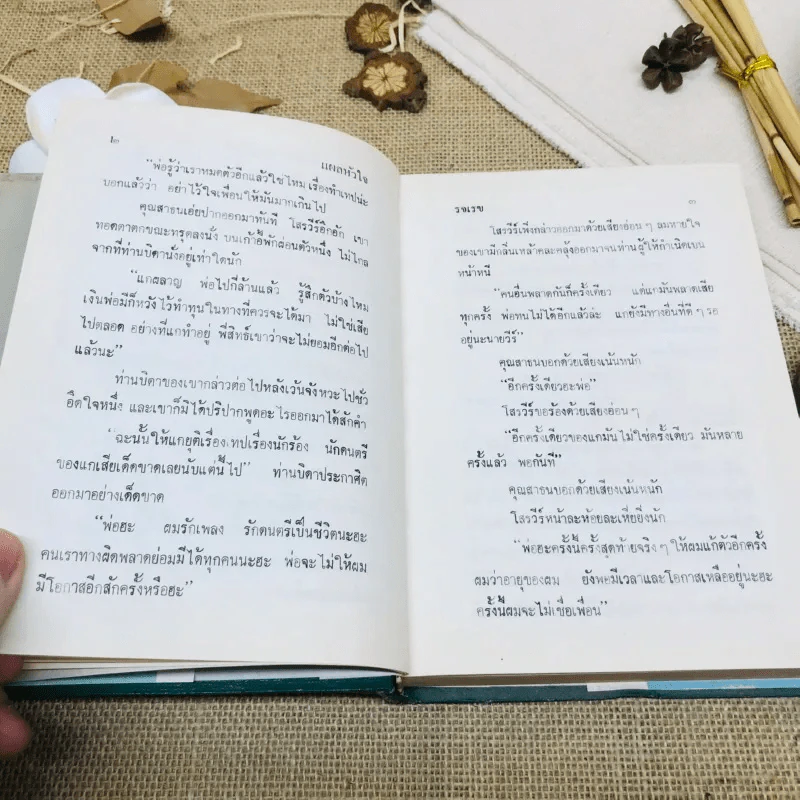 ๒
แผลหัวใจ
“พ่อรู้ว่าเราหมดตัวอีกแล้วใช่ไหม เรื่องทำเทปน่ะ
บอกแล้วว่า อย่าไว้ใจเพื่อนให้มันมากเกินไป
คุณสาธนเอ่ยปากออกมาทันที โสรวีร์อึกอัก เขา
ทอดตาตกขณะทรุดลงนั่ง บนเก้าอี้พักผ่อนตัวหนึ่ง ไม่ไกล
จากที่ท่านบิดานั่งอยู่เท่าใดนัก
“แกผลาญ พ่อไปกี่ล้านแล้ว รู้สึกตัวบ้างไหม
เงินพ่อมีก็หวัง ไว้ทำทุนในทางที่ควรจะได้มา ไม่ใช่เสีย
ไปตลอด อย่างที่แกทำอยู่ พี่สิทธ์เขาว่าจะไม่ยอมอีกต่อไป
แล้วนะ”
ท่านบิดาของเขากล่าวต่อไปหลังเว้นจังหวะไปชั่ว
อึดใจหนึ่ง และเขาก็มิได้ปริปากพูดอะไรออกมาได้สักคำ
“ฉะนั้นให้แกยุติเรื่องเทปเรื่องนักร้อง นักดนตรี
ของแกเสียเด็ดขาดเลยนับแต่นี้ไป” ท่านบิดาประกาศิต
ออกมาอย่างเด็ดขาด
“พ่อฮะ ผมรักเพลง รักดนตรีเป็นชีวิตนะฮะ
คนเราทางผิดพลาดย่อมมีได้ทุกคนนะฮะ พ่อจะไม่ให้ผม
มีโอกาสอีกสักครั้งหรือฮะ”
รจเรข
๓
โสรวีร์เพิ่งกล่าวออกมาด้วยเสียงอ่อน ๆ ลมหายใจ
ของเขามีกลิ่นเหล้าคละคลุ้งออกมาจนท่านผู้ให้กำเนิดเบน
หน้าหนี
“คนอื่นพลาดกันก็ครั้งเดียว แต่แกมันพลาดเสีย
ทุกครั้ง พ่อทนไม่ได้อีกแล้วล่ะ แกยังมีทางอื่นที่ดี ๆ รอ
อยู่นะนายวีร์”
คุณสาธนบอกด้วยเสียงเน้นหนัก
“อีกครั้งเดียวฮะพ่อ”
โสรวีร์ขอร้องด้วยเสียงอ่อน ๆ
“อีกครั้งเดียวของแกมันไม่ใช่ครั้งเดียว มันหลาย
ครั้งแล้ว พอกันที”
คุณสาธนบอกด้วยเสียงเน้นหนัก
โสรวีร์หน้าละห้อยละเหี่ยยิ่งนัก
“พ่อฮะครั้งนี้ครั้งสุดท้ายจริง ๆ ให้ผมแก้ตัวอีกครั้ง
ผมว่าอายุของผม ยังพอมีเวลาและโอกาสเหลืออยู่นะฮะ
ครั้งนี้ผมจะไม่เชื่อเพื่อน”